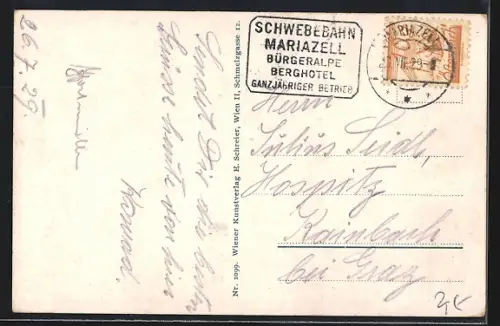 26.7.29.
Sendet Dir die besten
Grüße heute von hier
Konrad.
Nr. 1099. Wiener Kunstverlag H. Schreier, Wien II, Schmelzgasse 12.
SCHWEBEBAHN
MARIAZELL
BÜRGERALPE
BERGHOTEL
GANZJÄHRIGER BETRIEB
MARIAZELL
Herrn
Julius Seidl,
Hospitz
Rainbach
bei Graz
2,-€